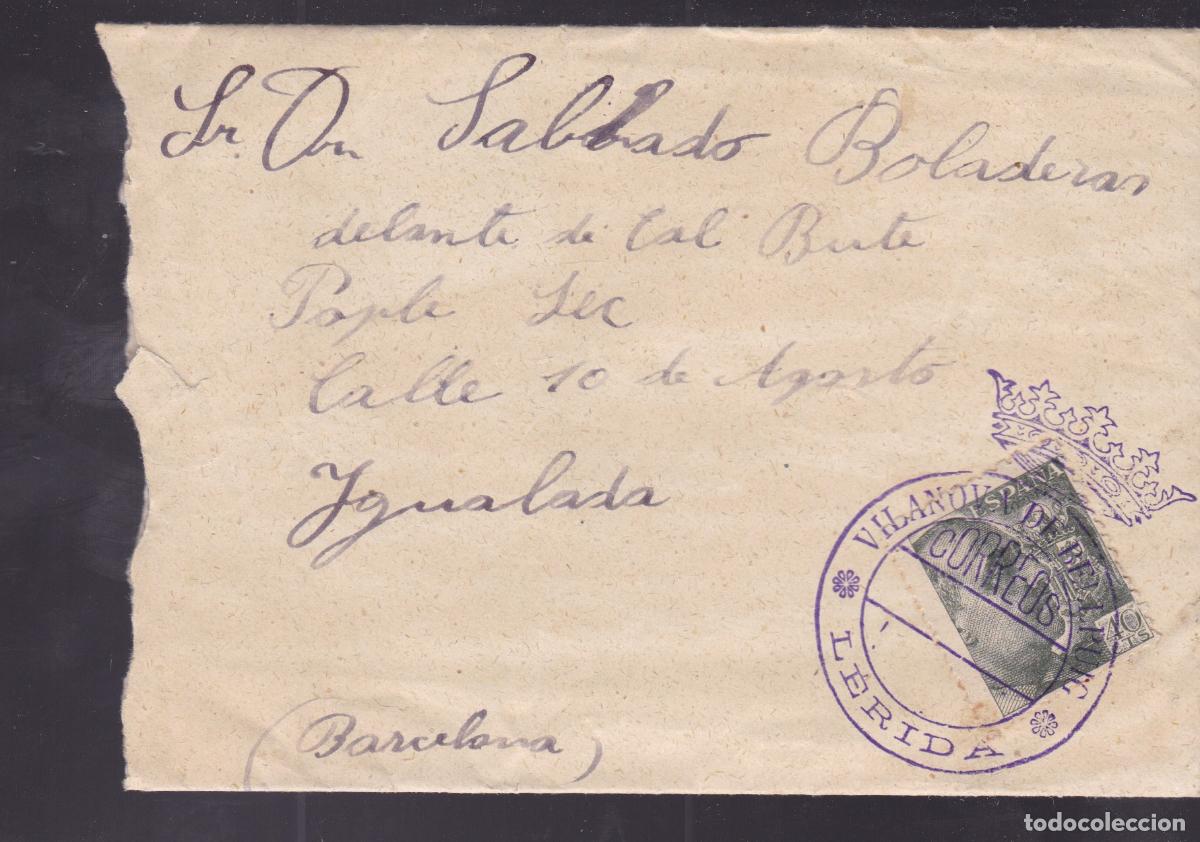 Sr. Don Salbado Boladeras
delante de Cal Bute
Pople Sec
Calle 10 de Agosto
Igualada
(Barcelona)
ESPAÑA
CORREOS
40 CTS
VILANOVA DE BELLPUIG
CORREOS
LÉRIDA
todocoleccion